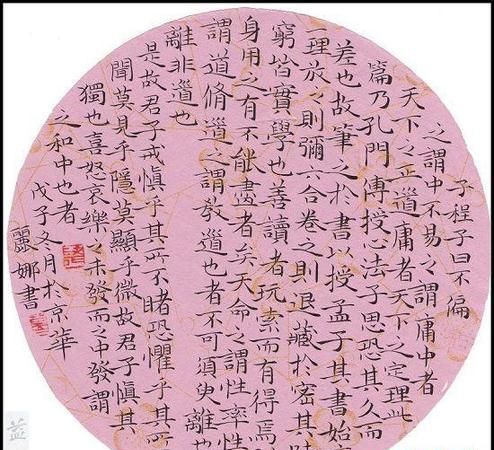 子程子曰不偏
之謂中不易之謂庸中者
天下之正道庸者天下之定理此
篇乃孔門傳授心法子思恐其久而
差也故筆之於書以授孟子其書始
一理放々則彌六合卷之則退藏於密其味
窮皆實學也善讀者玩索而有得焉
身用之有不能盡者矣天命之謂性率性
謂道脩道之謂教道也者不可須臾離也
離非道也
是故君子戒慎乎其所不睹恐懼乎其所
聞莫見乎隱莫顯乎微故君子慎其
獨也喜怒哀樂々未發而之中發謂
之和中也者
戊子冬月於京華
麗娜書